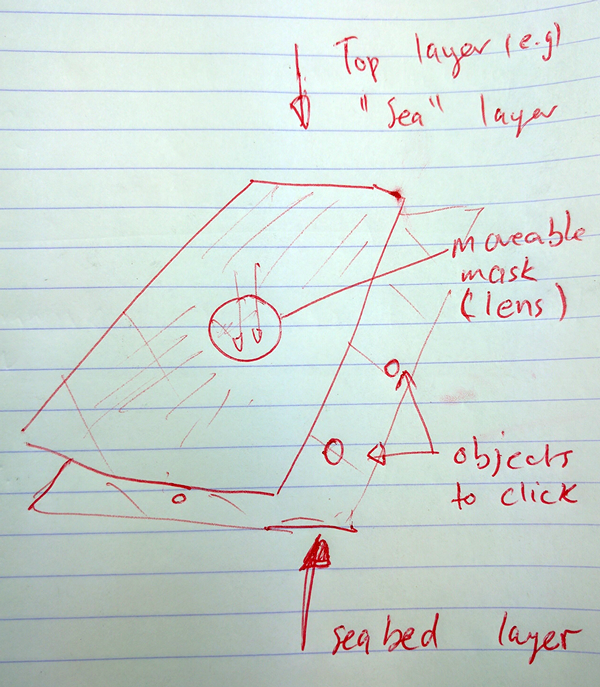 Top layer (e.g)
"Sea" layer
moveable
mask
(lens)
objects
to click
seabed layer